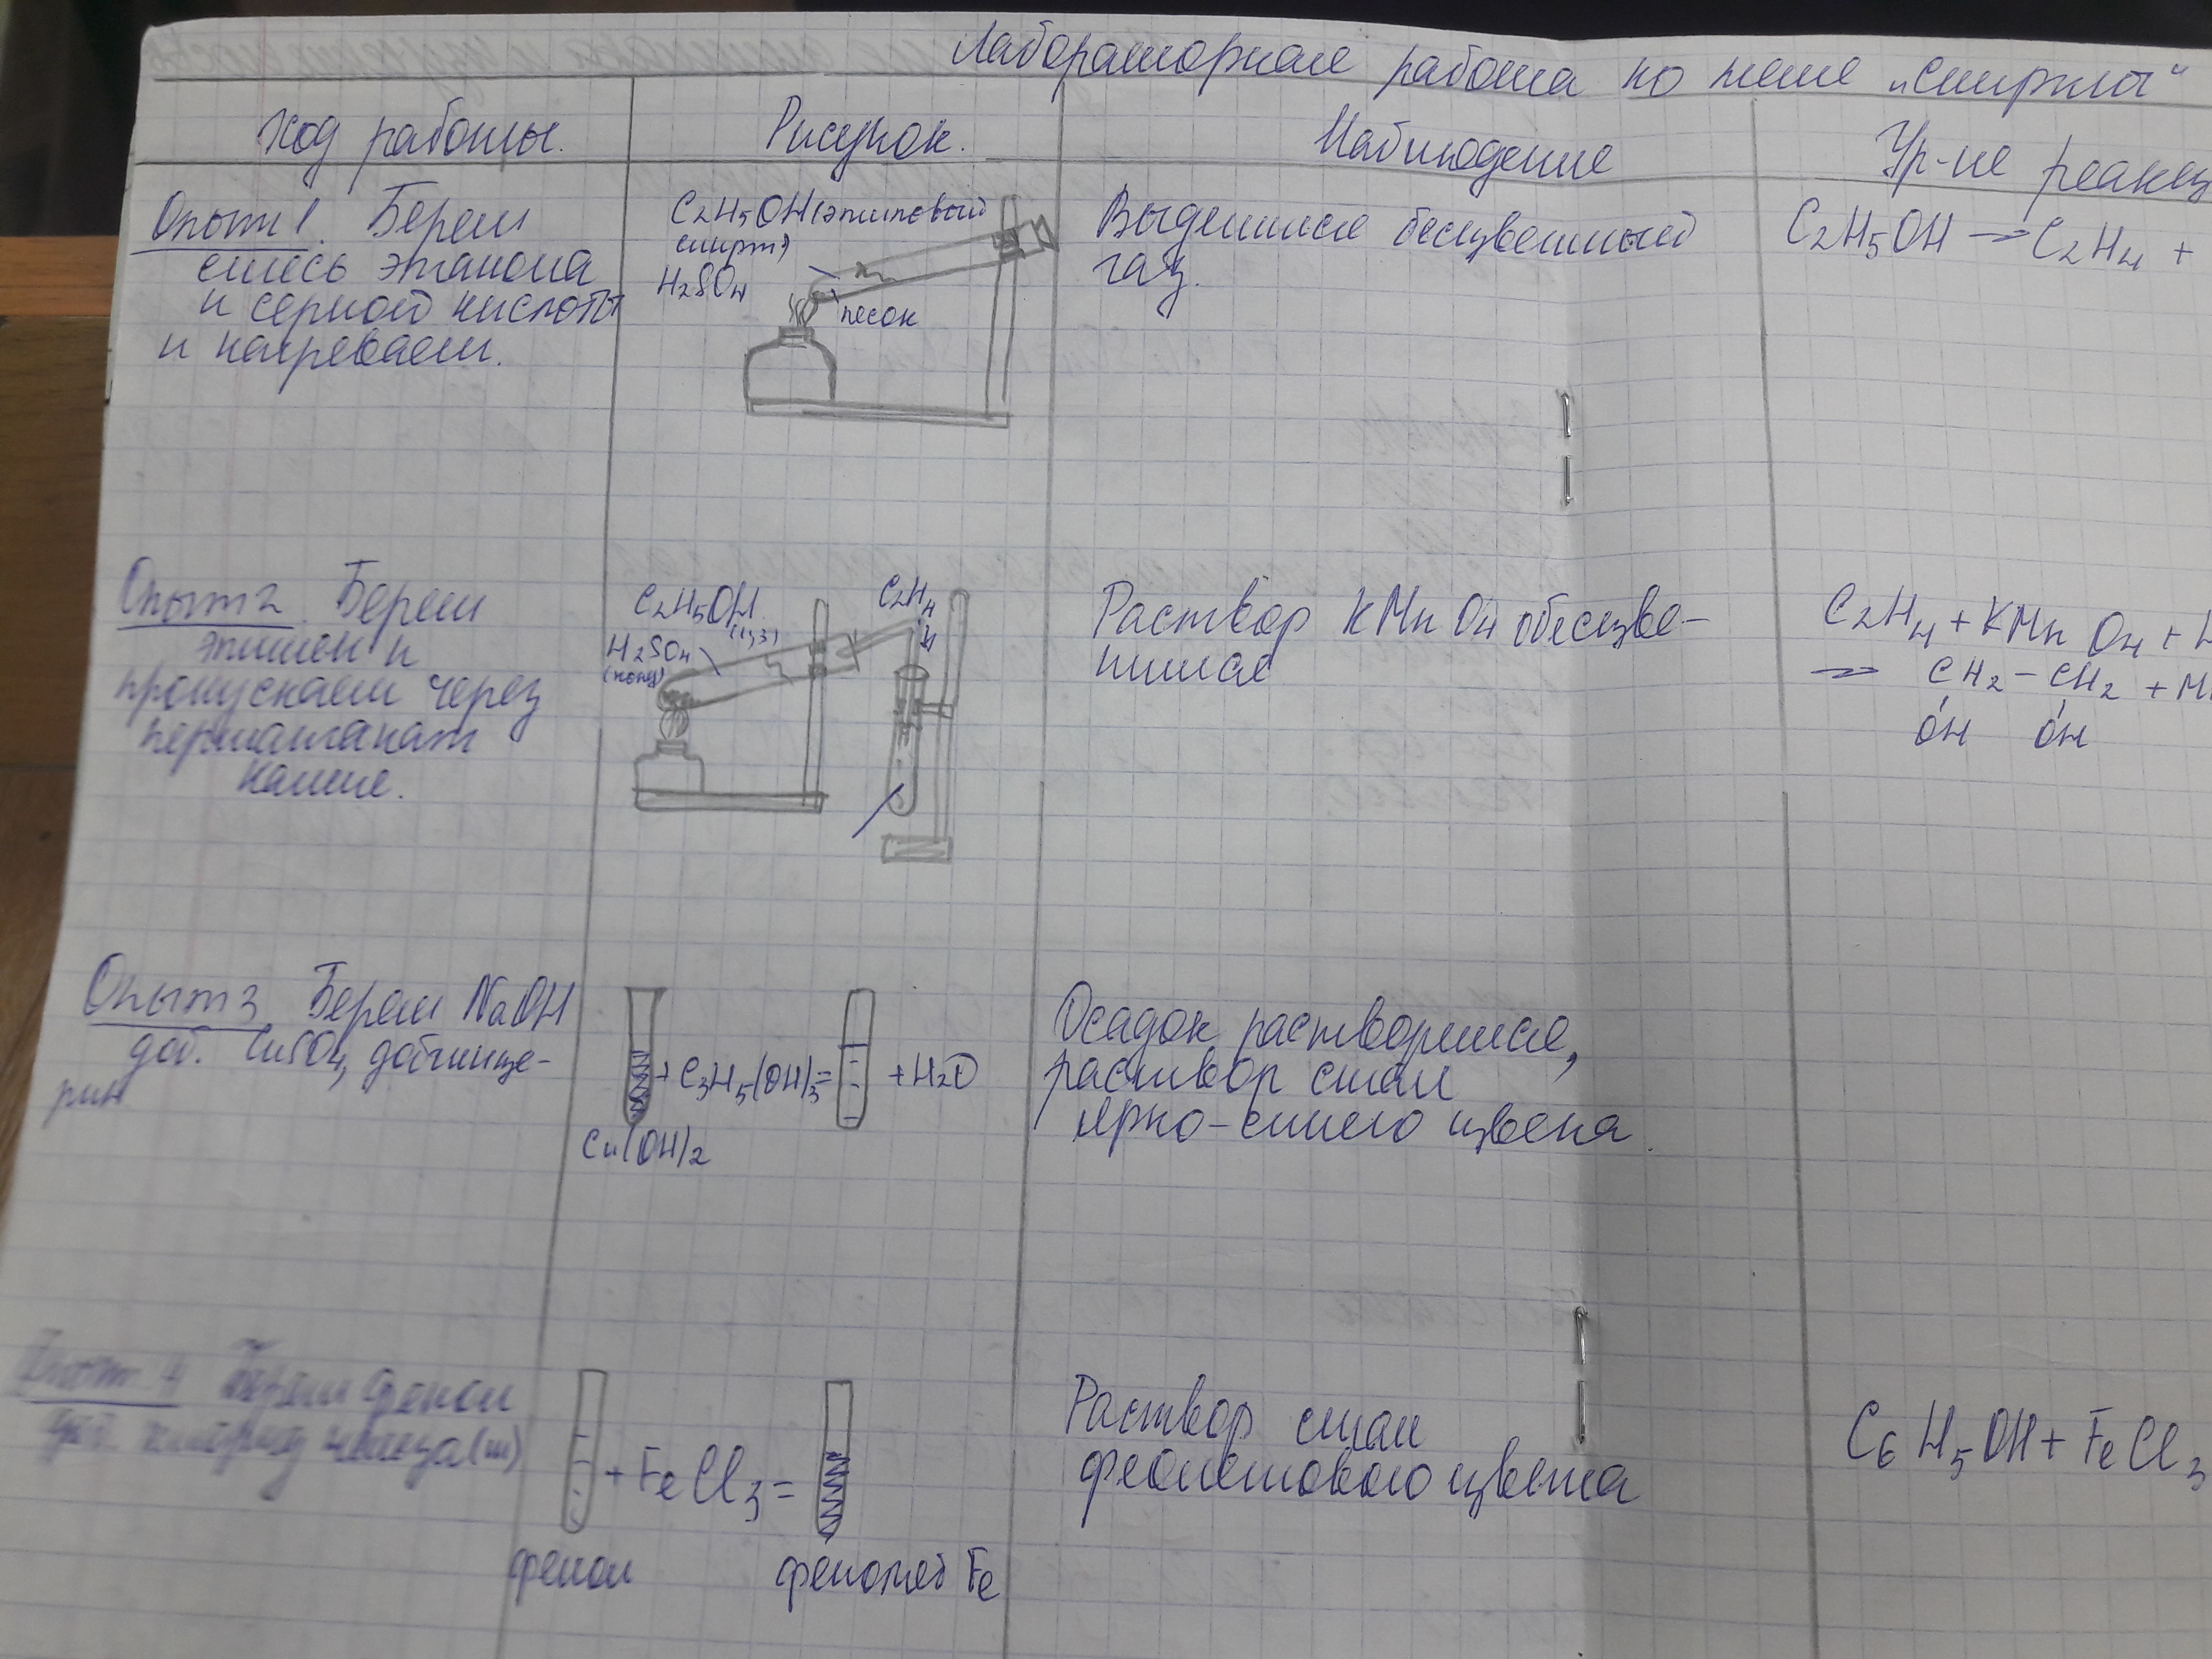 Лабораторная работа по теме „Спирты“
Ход работы.
Рисунок.
Наблюдение
Ур-ие реакц
Опыт 1. Берем
смесь этанола
и серной кислоты
и нагреваем.
C₂H₅OH (этиловый
спирт)
H₂SO₄
песок
Выделился бесцветный
газ.
C₂H₅OH → C₂H₄ +
Опыт 2. Берем
этилен и
пропускаем через
перманганат
калия.
C₂H₅OH
(1,3)
H₂SO₄
(конц)
C₂H₄
Раствор KMnO₄ обесцве-
тился
C₂H₄ + KMnO₄ +
→ CH₂ – CH₂ + Mn
OH OH
Опыт 3 Берем NaOH
доб. CuSO₄, доб глице-
рин
+ C₃H₅(OH)₃ = + H₂O
Cu(OH)₂
Осадок растворился,
раствор стал
ярко-синего цвета.
Опыт 4 Берем фенол
доб. хлорид железа (III)
+ FeCl₃ =
фенол
фенолят Fe
Раствор стал
фиолетового цвета
C₆H₅OH + FeCl₃